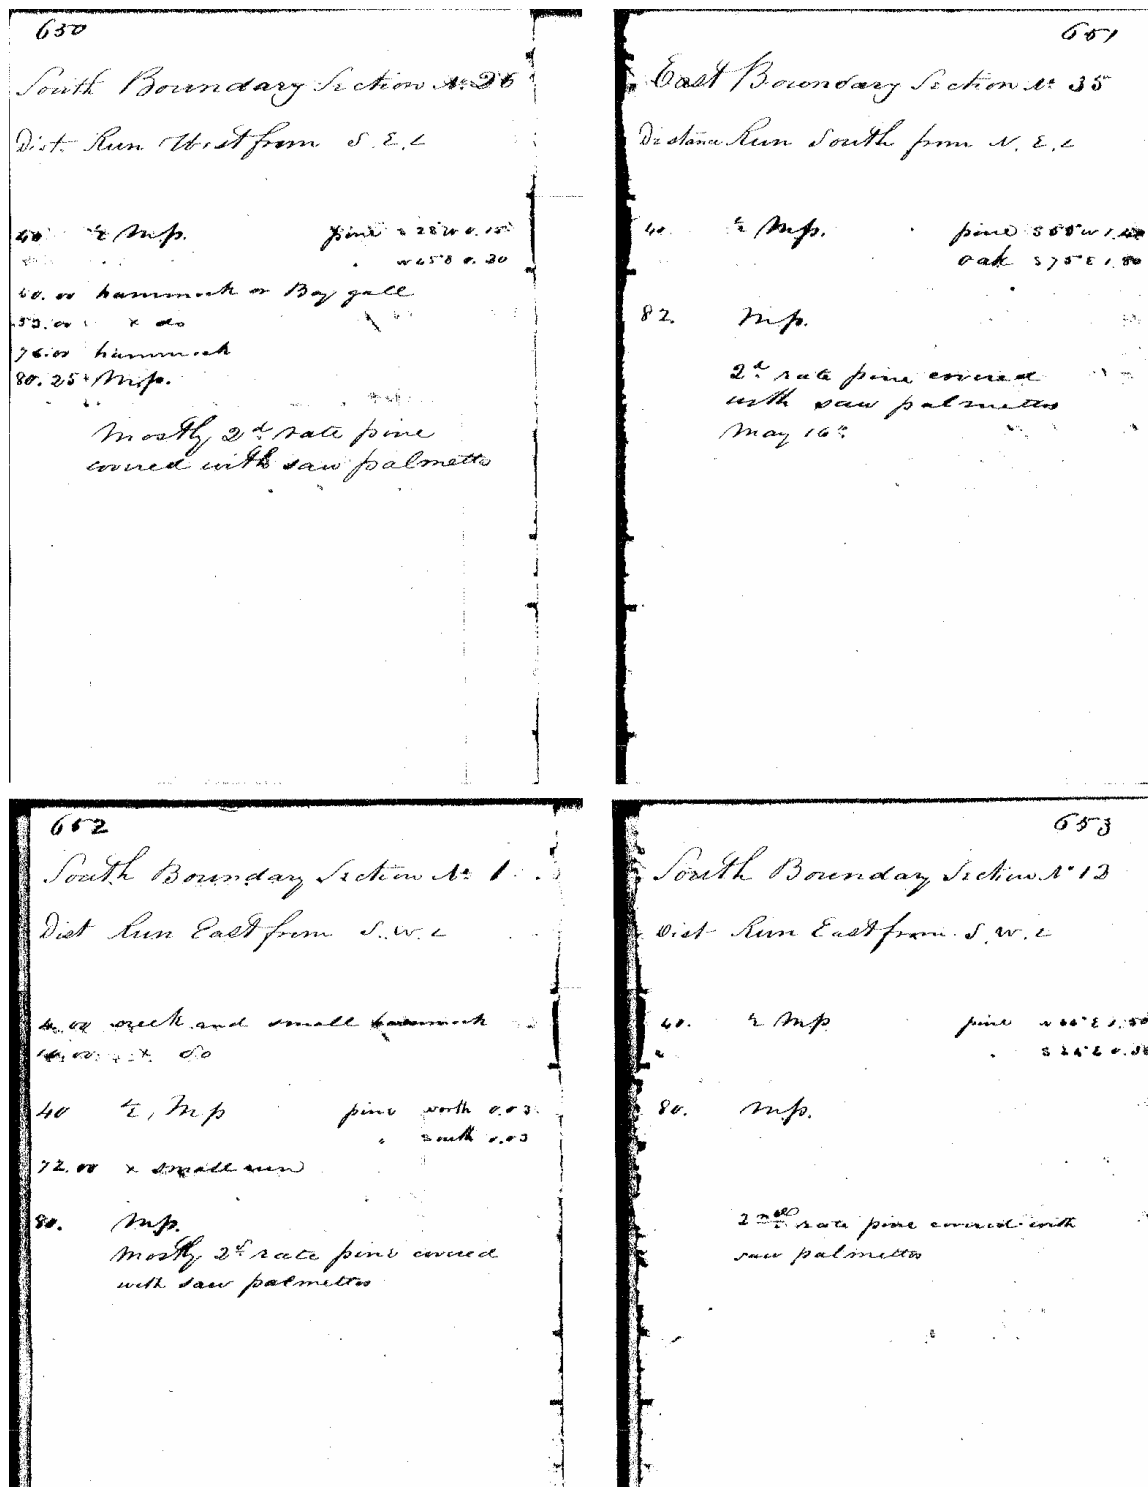 630
South Boundary Section No 26
Dist. Run West from S. E. C
40 ½ M.p. pine S 28 W 0.15
" N 65 E 0.30
hammock or Bay gall
x do
76.00 hammock
80.25 M.p.
Mostly 2d rate pine
covered with saw palmetto
651
East Boundary Section No 35
Distance Run South from N. E. C
40. ½ M.p. pine
oak S 75 E 1.80
82. M.p.
2d rate pine covered
with saw palmettos
May 16th
652
South Boundary Section No 1
Dist Run East from S. W. C
4.00 creek and small hammock
x do
40 ½ M.p pine north 0.03
" south 0.03
72.00 x small run
80. M.p.
Mostly 2d rate pine covered
with saw palmettos
653
South Boundary Section No 12
Dist Run East from S. W. C
40. ½ M.p pine N 66 E 1.50
" S 24 E
80. M.p.
2nd rate pine covered with
saw palmettos